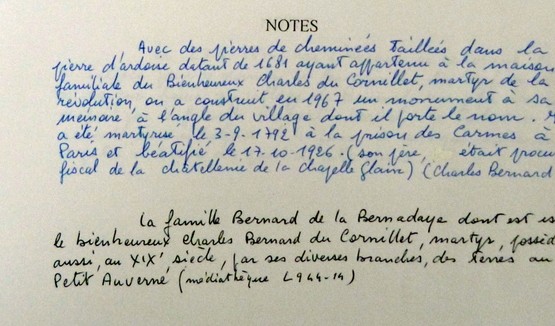 NOTES
Avec des pierres de cheminées taillées dans la
pierre d'ardoise datant de 1681 ayant appartenu à la maison
familiale du Bienheureux Charles du Cornillet, martyr de la
revolution, on a construit, en 1967 un monument à sa
mémoire à l'angle du village dont il porte le nom.
a été martyrisé le 3-9-1792 à la prison des Carmes à
Paris et béatifié le 17-10-1926. (son père, était procu
fiscal de la chatellenie de la chapelle Glain) (Charles Bernard
La famille Bernard de la Bernadaye dont est is
le bienheureux Charles Bernard du Cornillet, martyr, posséd
aussi, au XIXe siècle, par ses diverses branches, des terres au
Petit Auverné (médiathèque L944-14)